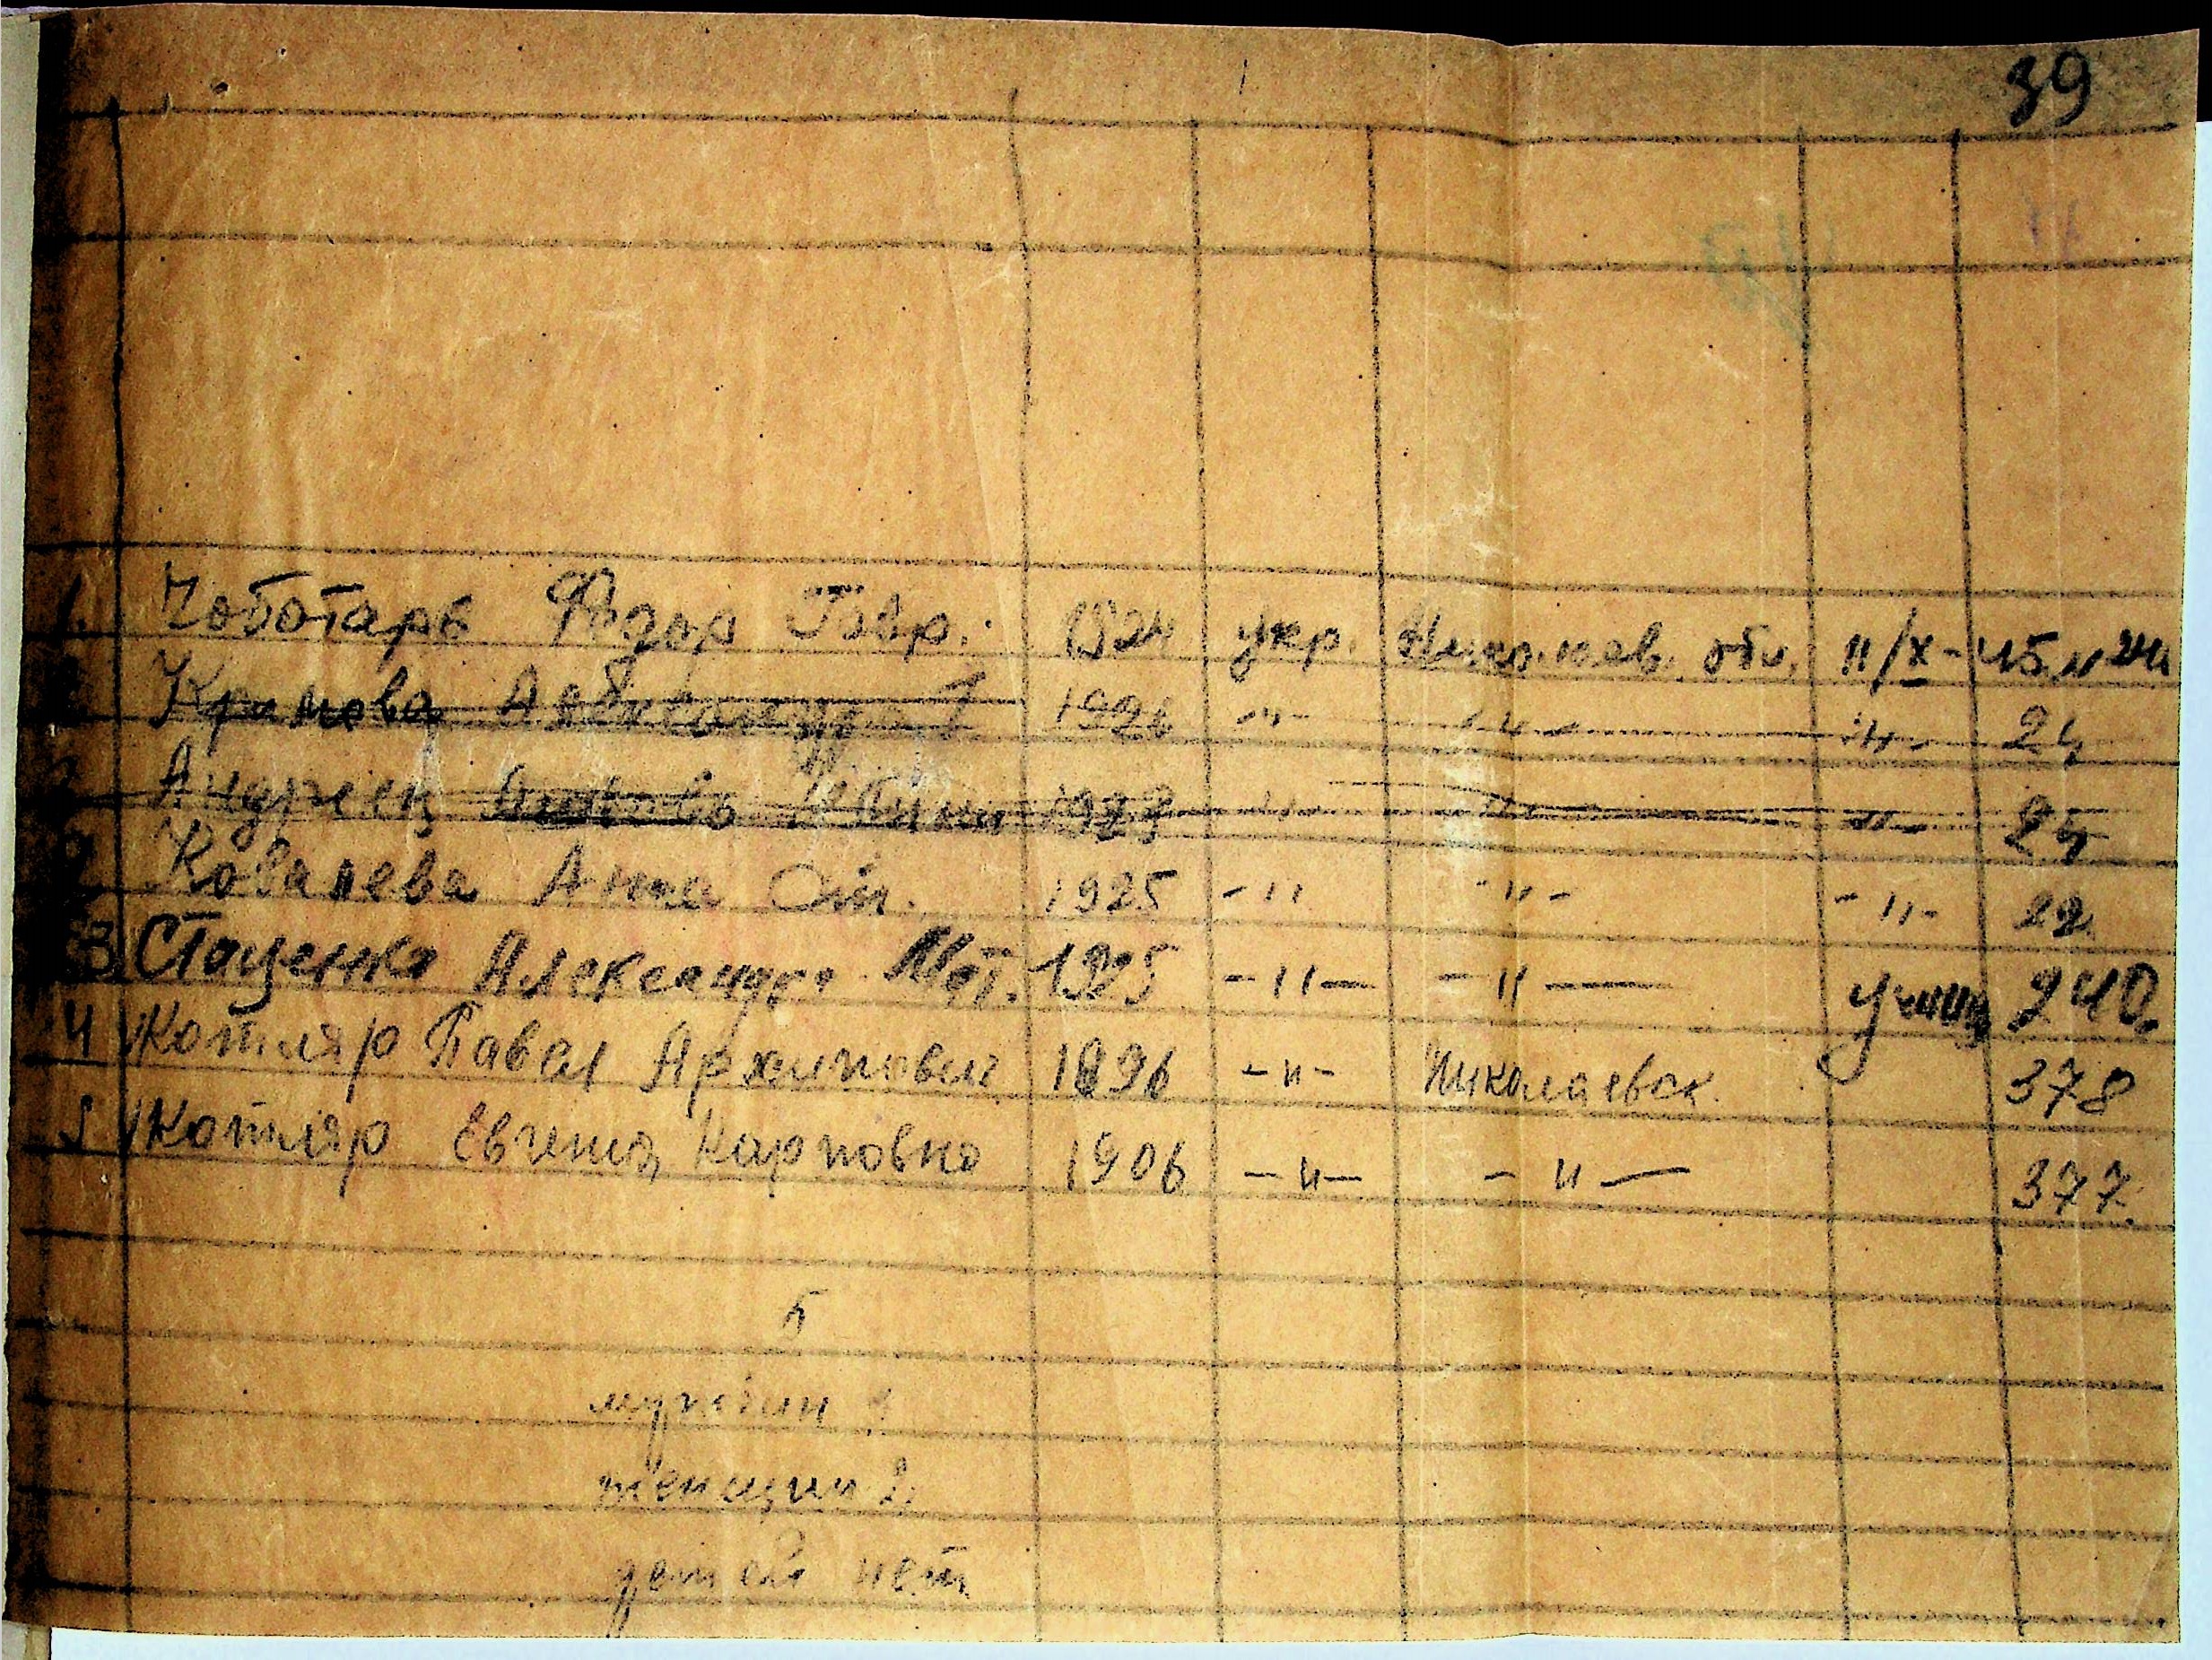 39
1. Чоботарь Федор Гавр. 1924 укр. Николаев. обл. 11/X-45 г. 24
1926 -"- -"- -"- 24
Андреец 1923 -"- -"- 25
Ковалева Анна 1925 -"- -"- -"- 22
3 Стаценко Александра 1925 -"- -"- 240.
4 Котляр Павел Архипович 1896 -"- Николаевск. 378
5 Котляр Евгения Карповна 1906 -"- -"- 377.
5
мужчин
женщин 2
детей нет